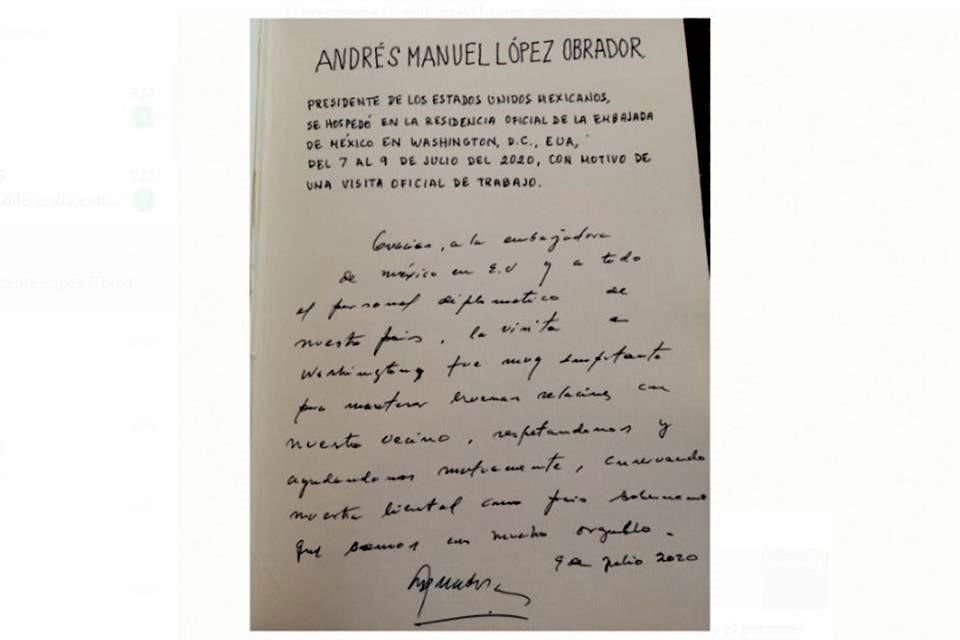 ANDRÉS MANUEL LÓPEZ OBRADOR
PRESIDENTE DE LOS ESTADOS UNIDOS MEXICANOS,
SE HOSPEDÓ EN LA RESIDENCIA OFICIAL DE LA EMBAJADA
DE MÉXICO EN WASHINGTON, D.C., EUA,
DEL 7 AL 9 DE JULIO DEL 2020, CON MOTIVO DE
UNA VISITA OFICIAL DE TRABAJO.
Gracias, a la embajadora
de méxico en E.U y a todo
el personal diplomático de
nuestro país, la visita a
Washington fue muy importante
para mantener buenas relaciones con
nuestro vecino, respetandonos y
ayudandonos mutuamente, conservando
nuestra libertad como país soberano
que somos con mucho orgullo.
9 de julio 2020